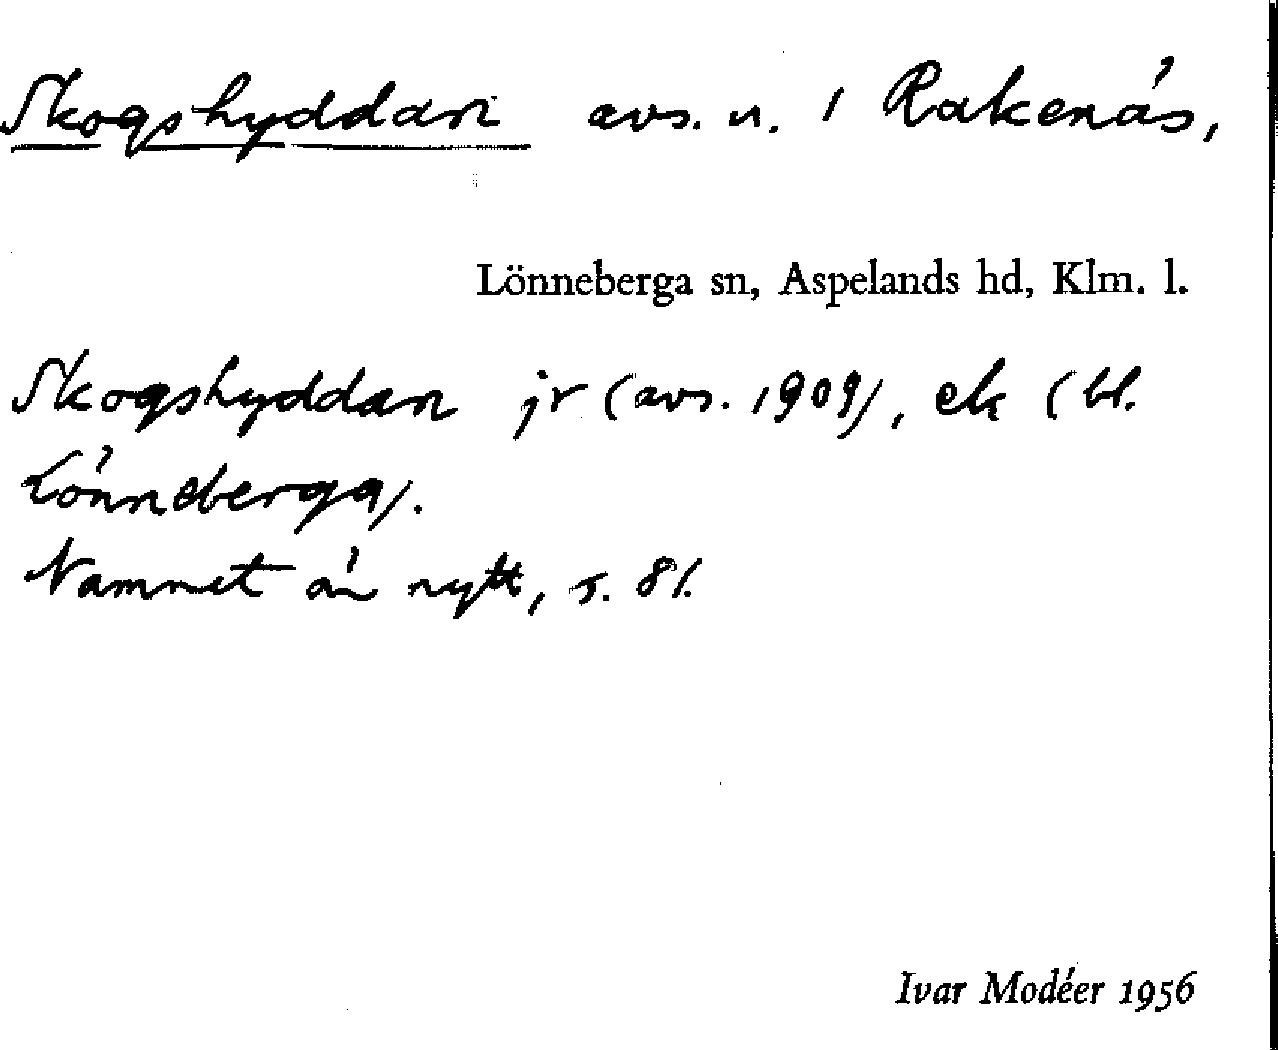 Skogshyddan avs. u. / Rakenäs,
Lönneberga sn, Aspelands hd, Klm. l.
Skogshyddan jr (avs. 1909), ek (bl.
Lönneberga).
Namnet är nytt, s. 81.
Ivar Modéer 1956